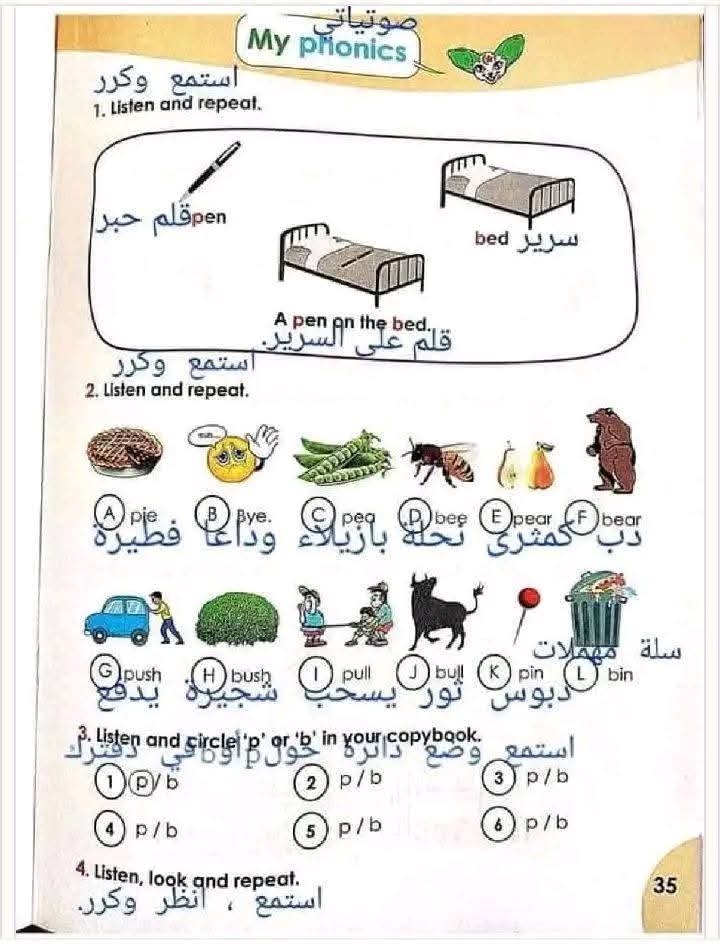 صوتياتي
My phonics
استمع وكرر
1. Listen and repeat.
قلم حبر pen
bed سرير
A pen on the bed.
قلم على السرير.
استمع وكرر
2. Listen and repeat.
A pie B Bye. C pea D bee E pear F bear
فطيرة وداعا بازيلاء نحلة كمثرى دب
سلة مهملات
G push H bush I pull J bull K pin L bin
يدفع شجيرة يسحب ثور دبوس
3. Listen and circle 'p' or 'b' in your copybook.
استمع وضع دائرة حول p أو b في دفترك
1 p/b 2 p/b 3 p/b
4 p/b 5 p/b 6 p/b
4. Listen, look and repeat.
استمع ، انظر وكرر.
35